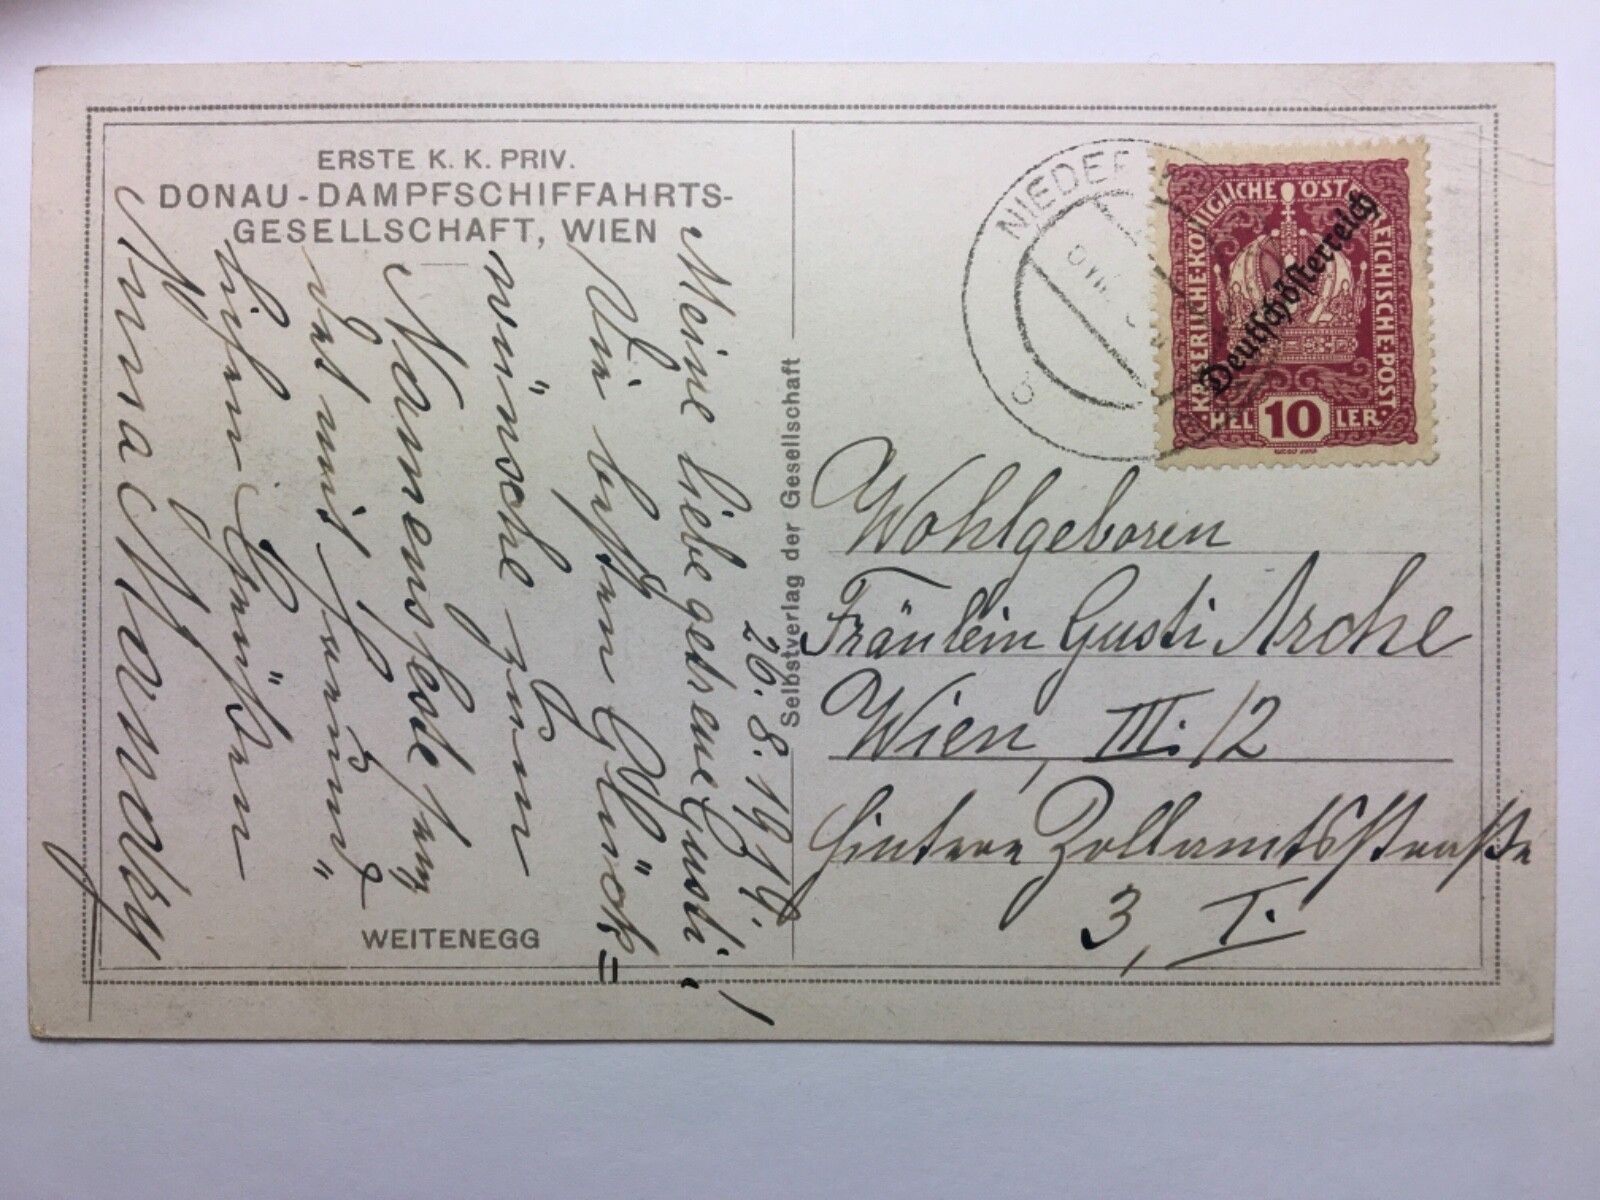 ERSTE K. K. PRIV.
DONAU-DAMPFSCHIFFAHRTS-
GESELLSCHAFT, WIEN
26. 8. 1919.
Meine liebe gebsene Gusti!
Die besten Glück=
wünsche zum
Namensfeste
mit
lieben Grüßen
Anna
WEITENEGG
Selbstverlag der Gesellschaft
NIEDER
KAISERLICHE KÖNIGLICHE ÖSTERREICHISCHE POST
Deutschösterreich
HEL 10 LER
Wohlgeboren
Fräulein Gusti Arche
Wien, III./2
Hintere Zollamtsstraße
3, I.